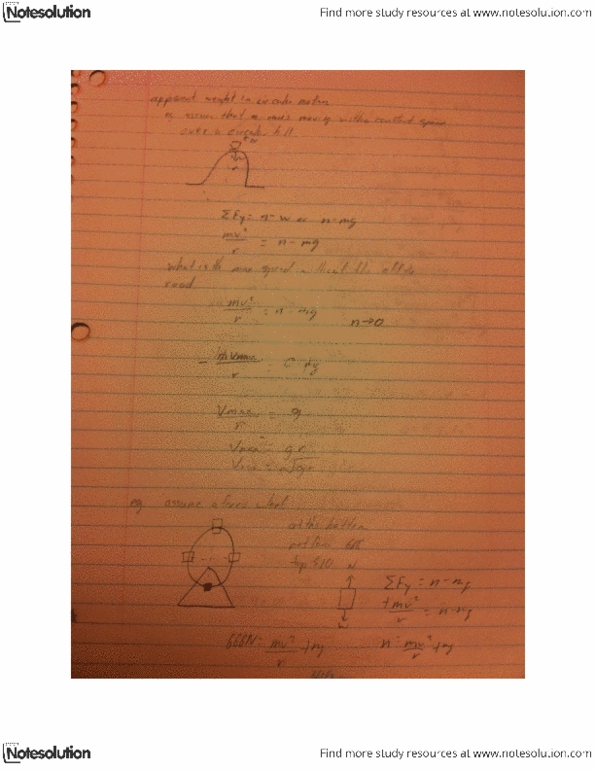 Notesolution
Find more study resources at www.notesolution.com
apparent weight in circular motion
eg assume that a mass moving with a constant speed
over a circular hill
r
ΣFy = n - w = n - mg
mv²/r = n - mg
what is the max speed without the
road
- mv²/r = n - mg
n→0
r
Vmax²/r = g
Vmax² = gr
Vmax = √gr
eg assume a ferris wheel
at the bottom
top 510
N
ΣFy = n - mg
+ mv²/r = n - mg
n = mv²/r + mg
668N = mv²/r + mg
Notesolution
Find more study resources at www.notesolution.com